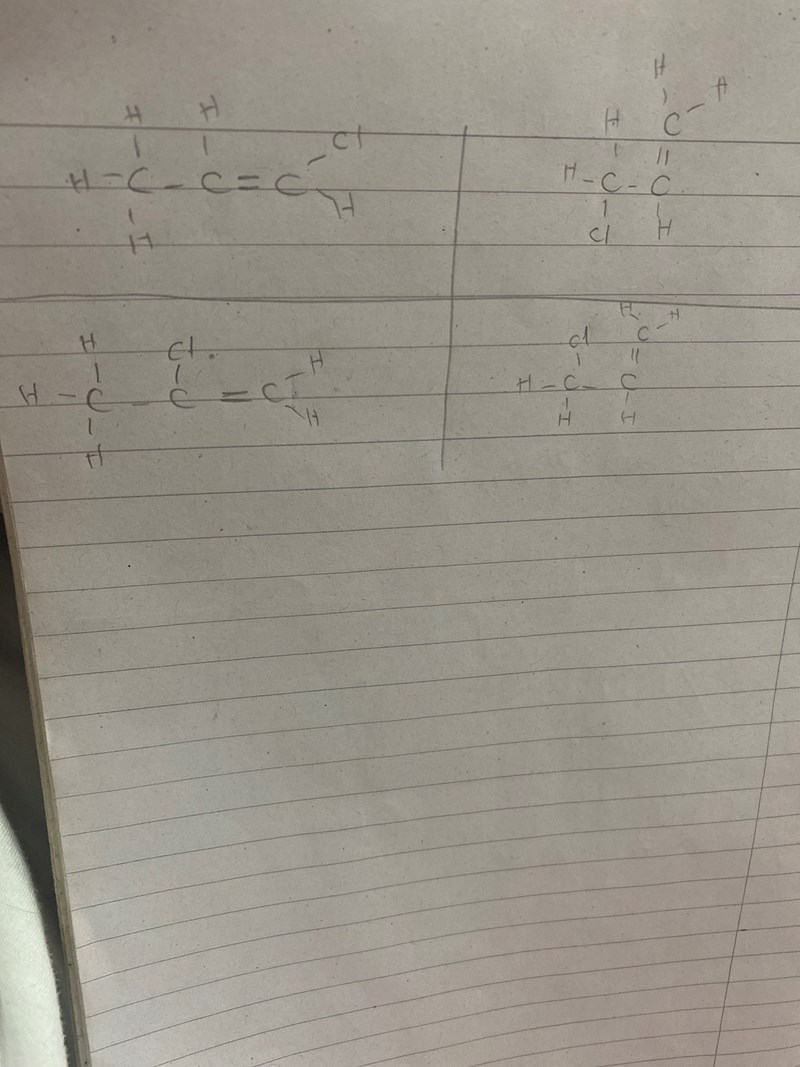 H H
Cl
H - C - C = C
H
H
H
H H
C
H - C - C
Cl H
H Cl
H
H - C - C = C
H
H
H H
Cl C
H - C - C
H H